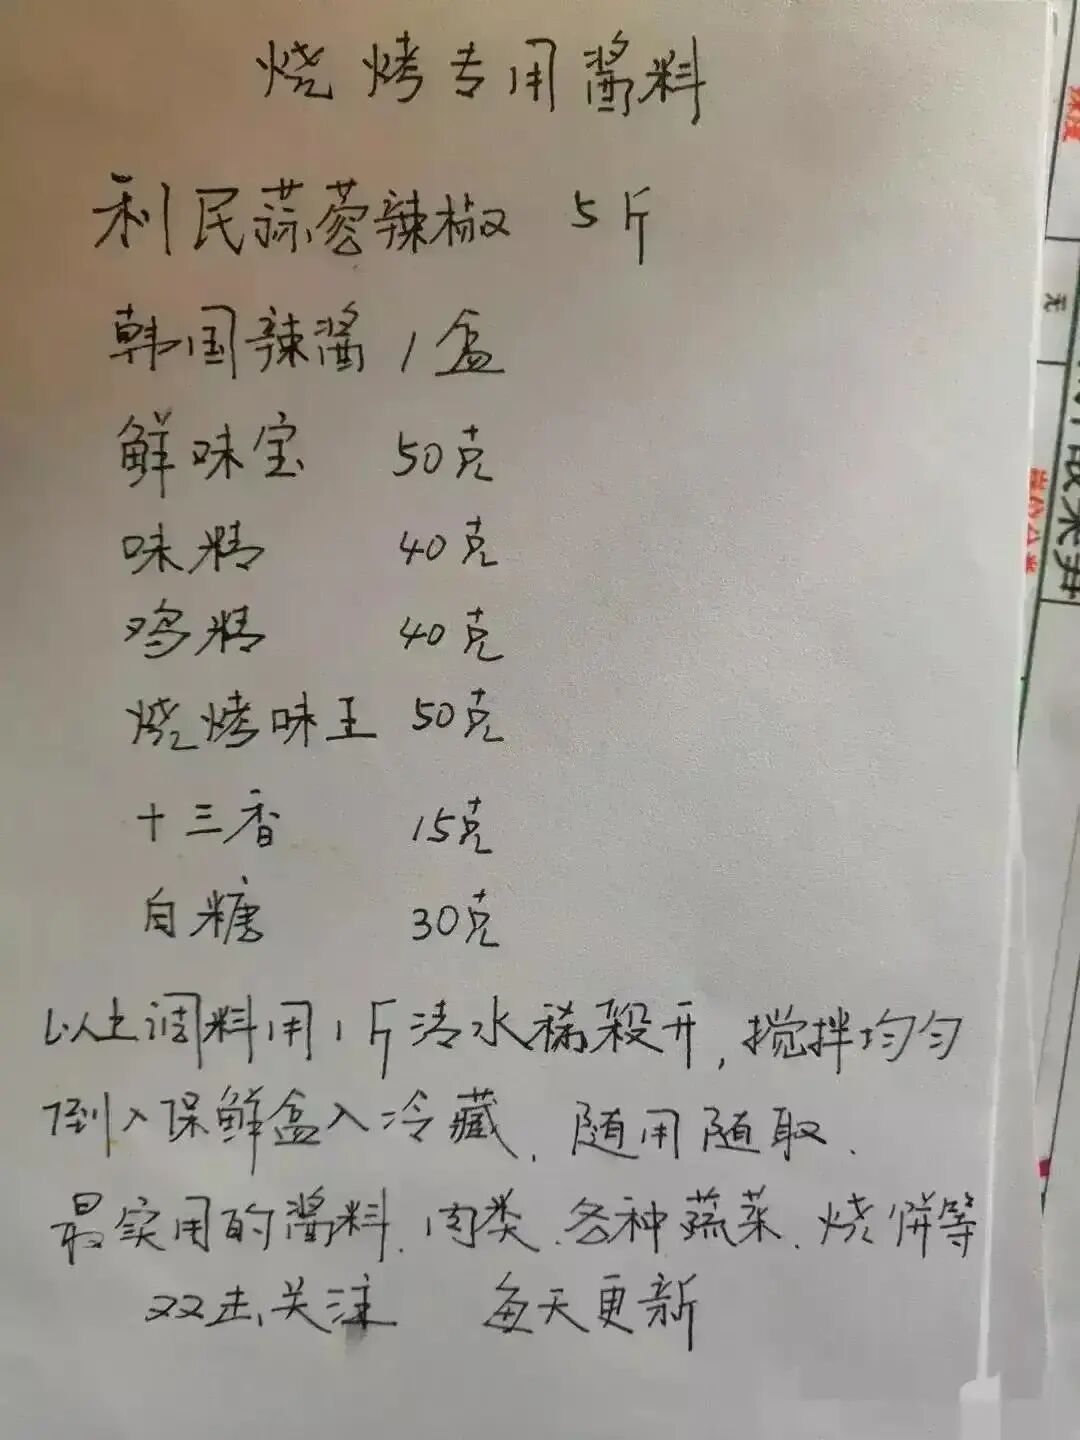 烧烤专用酱料
利民蒜蓉辣椒 5斤
韩国辣酱 1盒
鲜味宝 50克
味精 40克
鸡精 40克
烧烤味王 50克
十三香 15克
白糖 30克
以上调料用1斤清水稀释开,搅拌均匀
倒入保鲜盒入冷藏.随用随取.
最实用的酱料.肉类.各种蔬菜.烧饼等
双击关注 每天更新